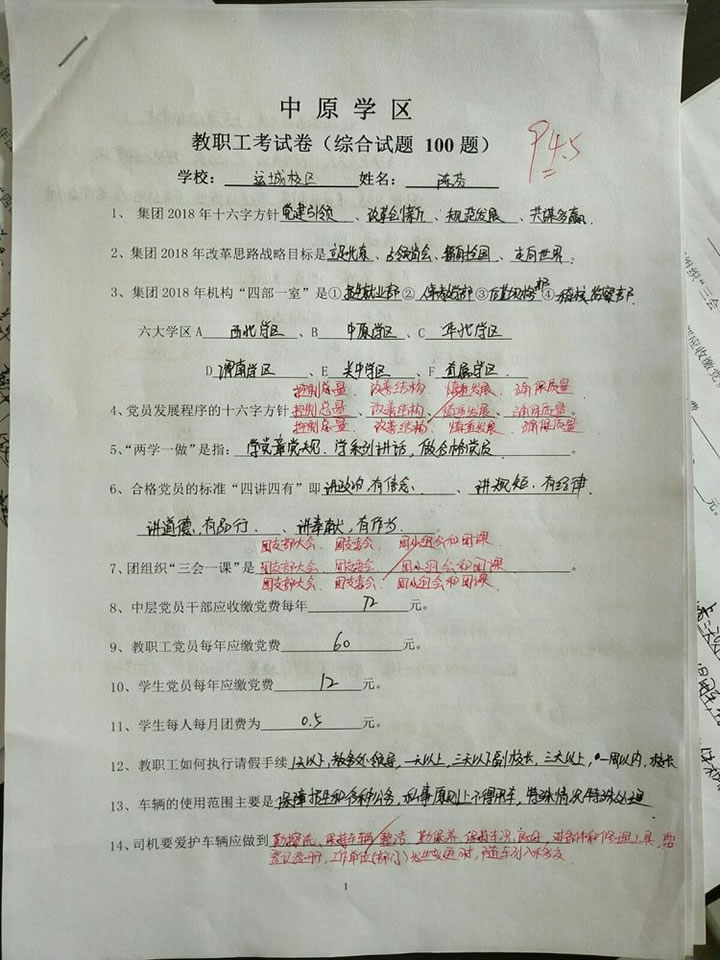 中原学区
教职工考试卷（综合试题 100 题）
94.5
学校：运城校区 姓名：陈芬
1、集团 2018 年十六字方针党建引领、改革创新、规范发展、共谋多赢.
2、集团 2018 年改革思路战略目标是立足北京、占领省会、辐射全国、走向世界。
3、集团 2018 年机构“四部一室”是①招生就业部②④稽核监察部
六大学区 A 西北学区、B 中原学区、C 华北学区
D 渭南学区、E 关中学区、F 直属学区.
控制总量、改善结构 慎重发展、确保质量
4、党员发展程序的十六字方针控制总量、改善结构、慎重发展、确保质量。
控制总量 改善结构 慎重发展、确保质量
5、“两学一做”是指：学党章党规、学系列讲话，做合格党员。
6、合格党员的标准“四讲四有”即讲政治,有信念、讲规矩、有纪律
讲道德、有品行、讲奉献、有作为。
团支部大会、团支委会、团小组会和团课
7、团组织“三会一课”是团支部大会、团支委会 团小组会和团课。
团支部大会、团支委会、团小组会和团课
8、中层党员干部应收缴党费每年 72 元。
9、教职工党员每年应缴党费 60 元。
10、学生党员每年应缴党费 12 元。
11、学生每人每月团费为 0.5 元。
12、教职工如何执行请假手续 1天以下,教务处领导，一天以上，三天以下副校长，三天以上，一周以内，校长
13、车辆的使用范围主要是保障招生和各种公务，私事原则上不得用车，特殊情况特殊处理
14、司机要爱护车辆应做到勤擦洗、保持车辆整洁、勤保养、保持车况良好、对部件和修理工具，要
登记造册，工作单位(部门)发生变更时，随车列入移交
1